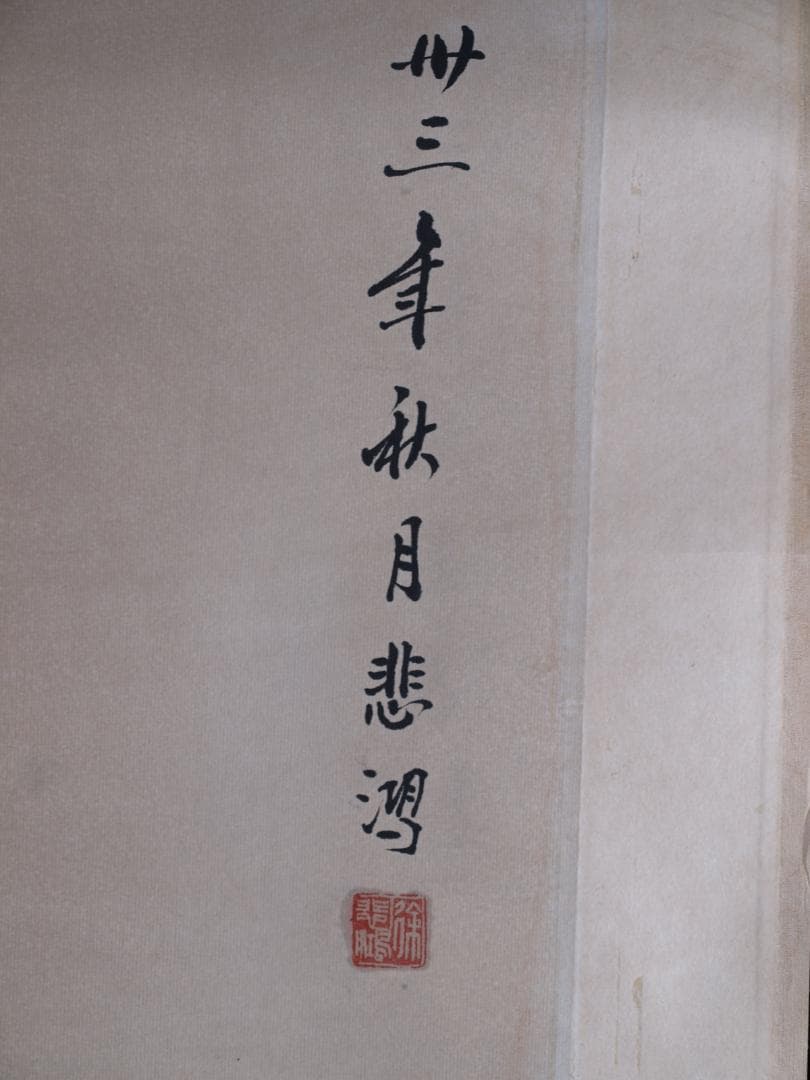 卅三年秋月悲鸿
徐悲鴻